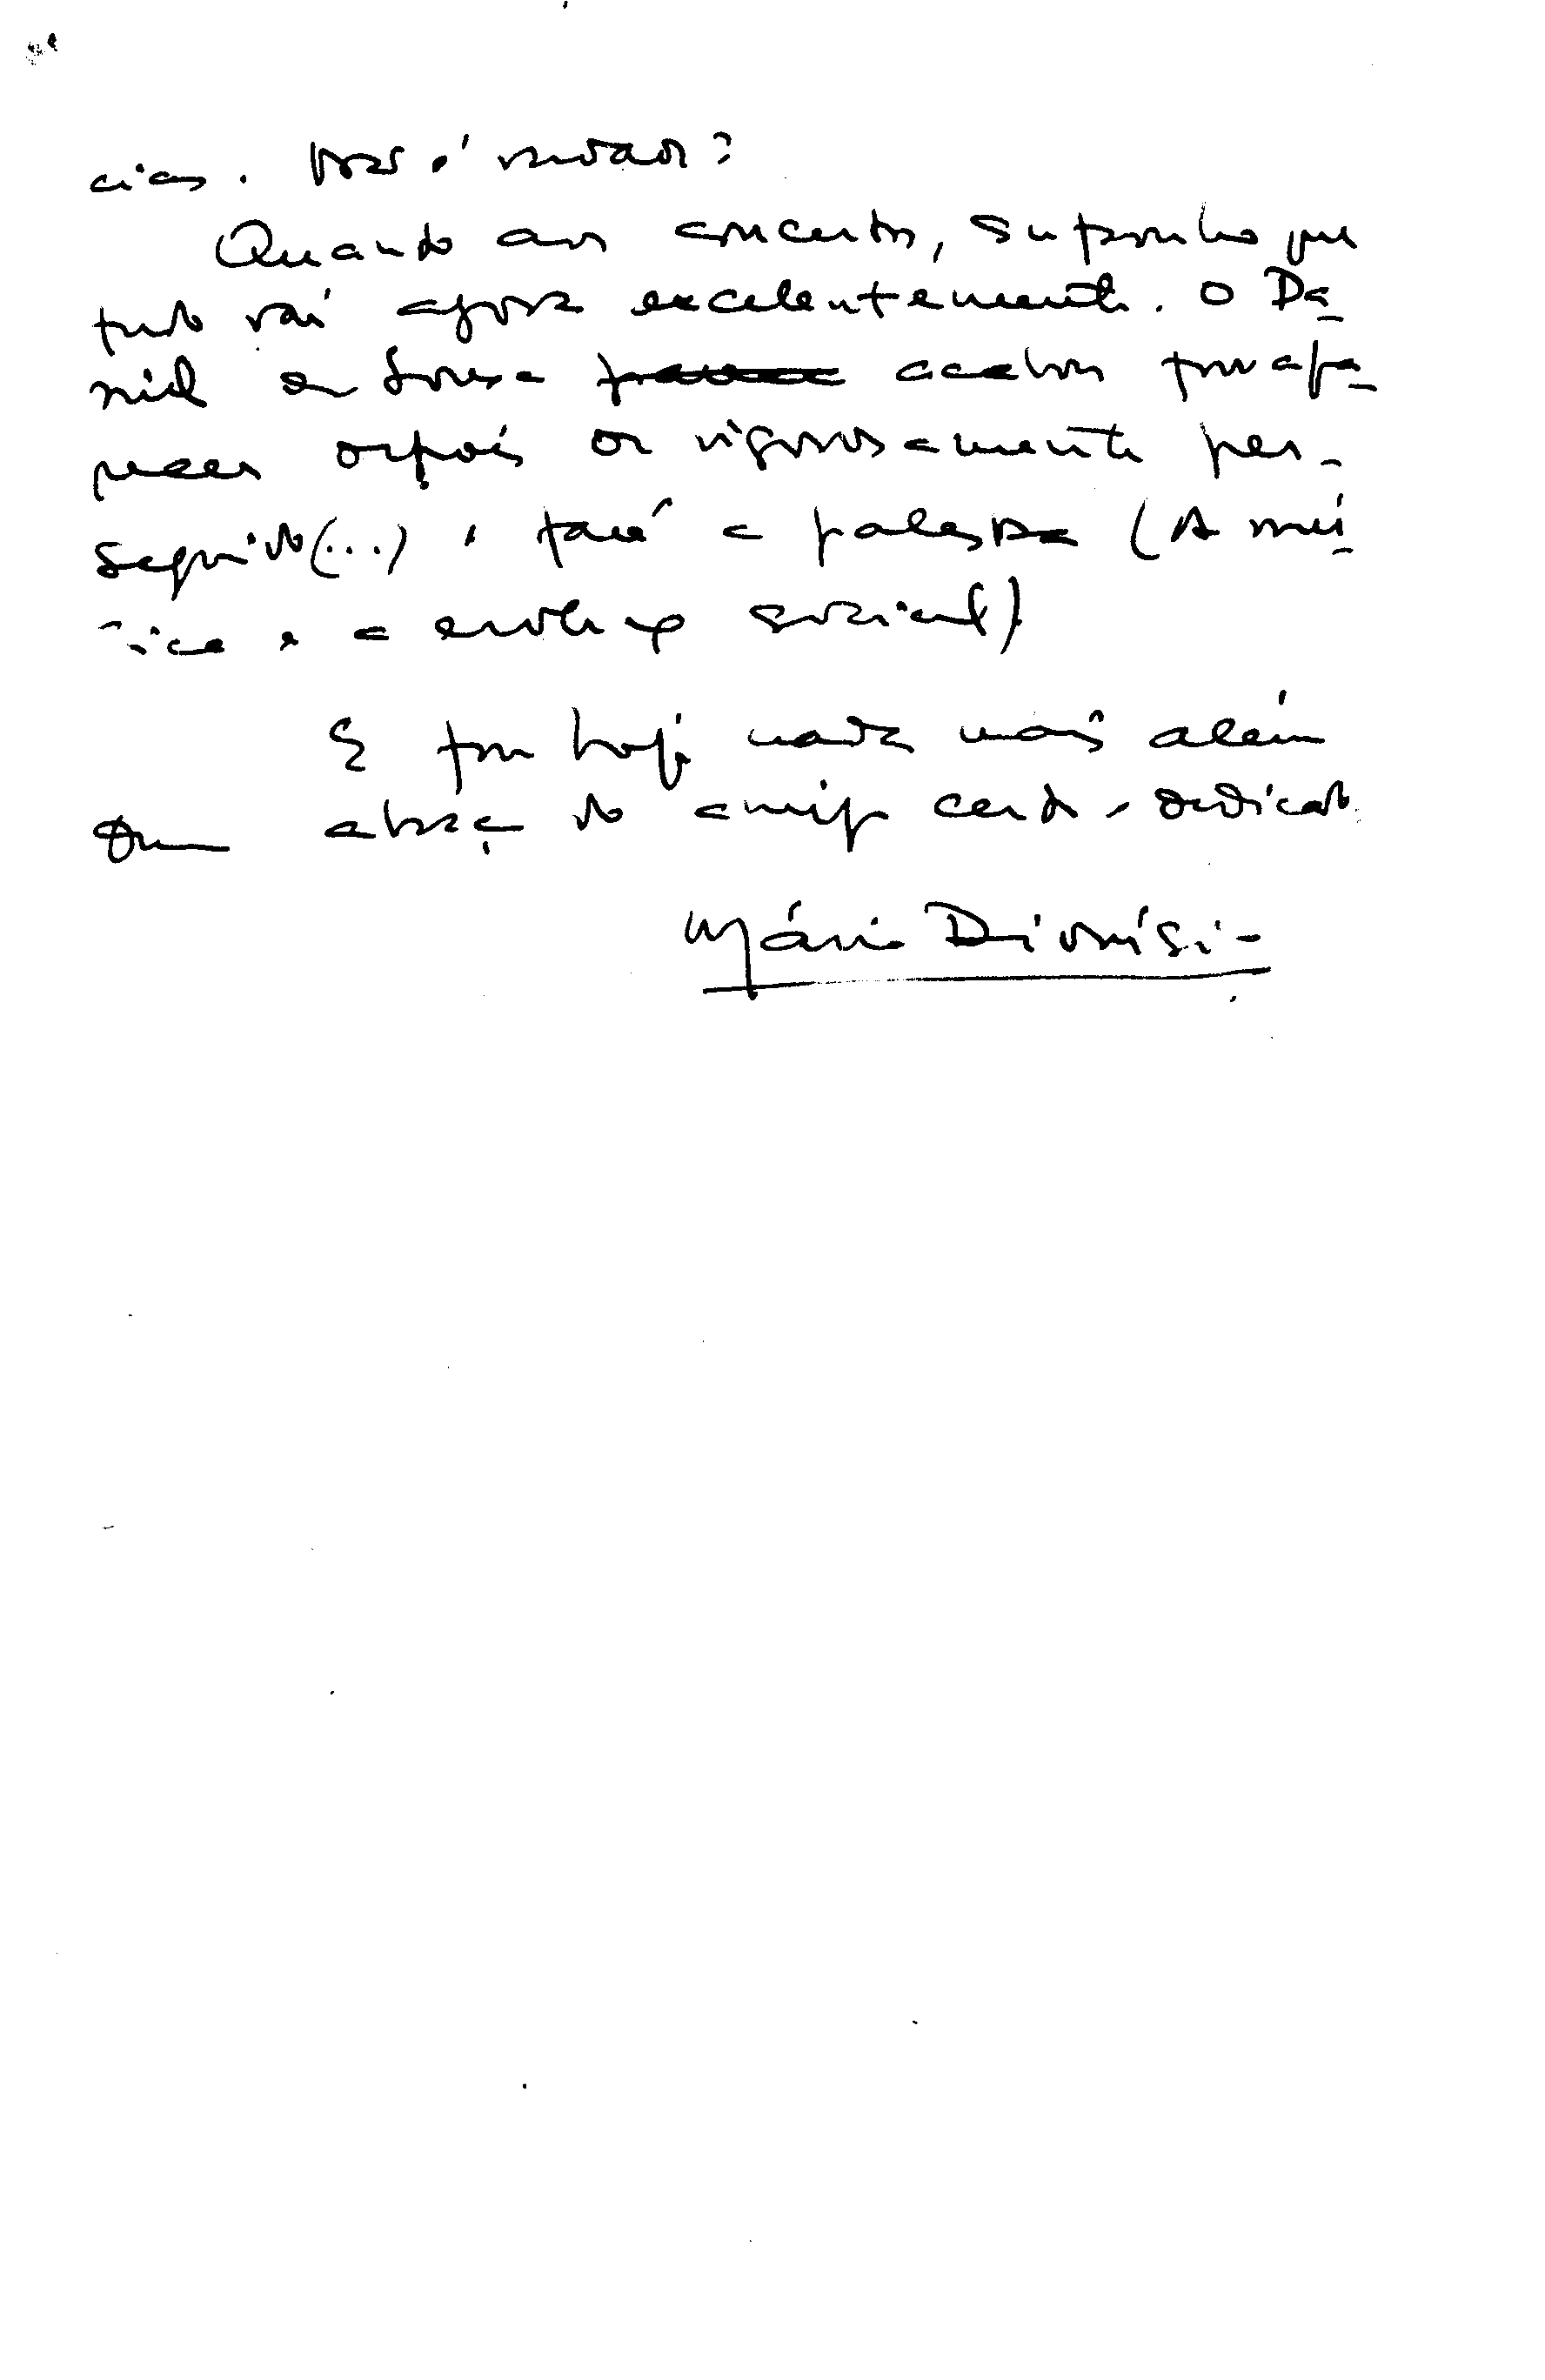 cias. Mas é verdade?
Quando aos concertos, suponho que
tudo vai agora excelentemente. O Da-
niel de Sousa acabou por apa-
recer depois de rigorosamente per-
seguido (...) e fará a palestra (A mú-
sica e a evolução social)
E por hoje nada mais além
dum abraço do amigo certo e dedicado
Mário Dionísio